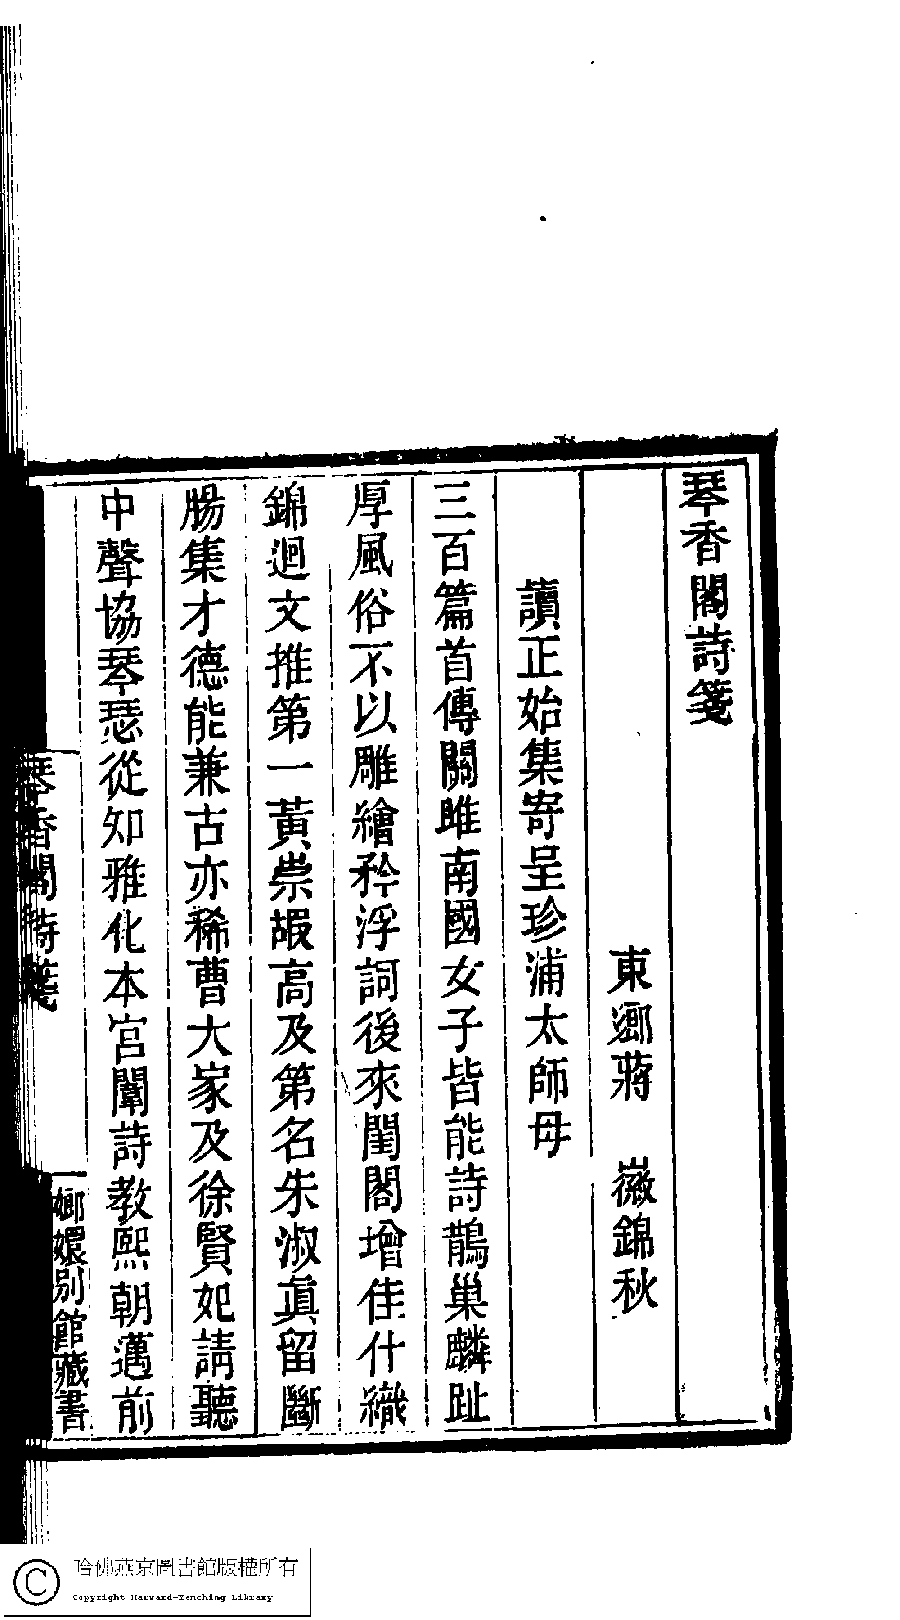 琴香閣詩箋
東鄉蔣　徽錦秋
讀正始集寄呈珍浦太師母
三百篇首傳關雎南國女子皆能詩鵲巢麟趾
厚風俗不以雕繪矜浮詞後來閨閤增佳什織
錦迴文推第一黃崇嘏高及第名朱淑眞留斷
腸集才德能兼古亦稀曹大家及徐賢妃請聽
中聲協琴瑟從知雅化本宮闈詩教熙朝邁前
琴香閣詩箋
嫏嬛別館藏書
哈佛燕京圖書館版權所有
Copyright Harvard-Yenching Library